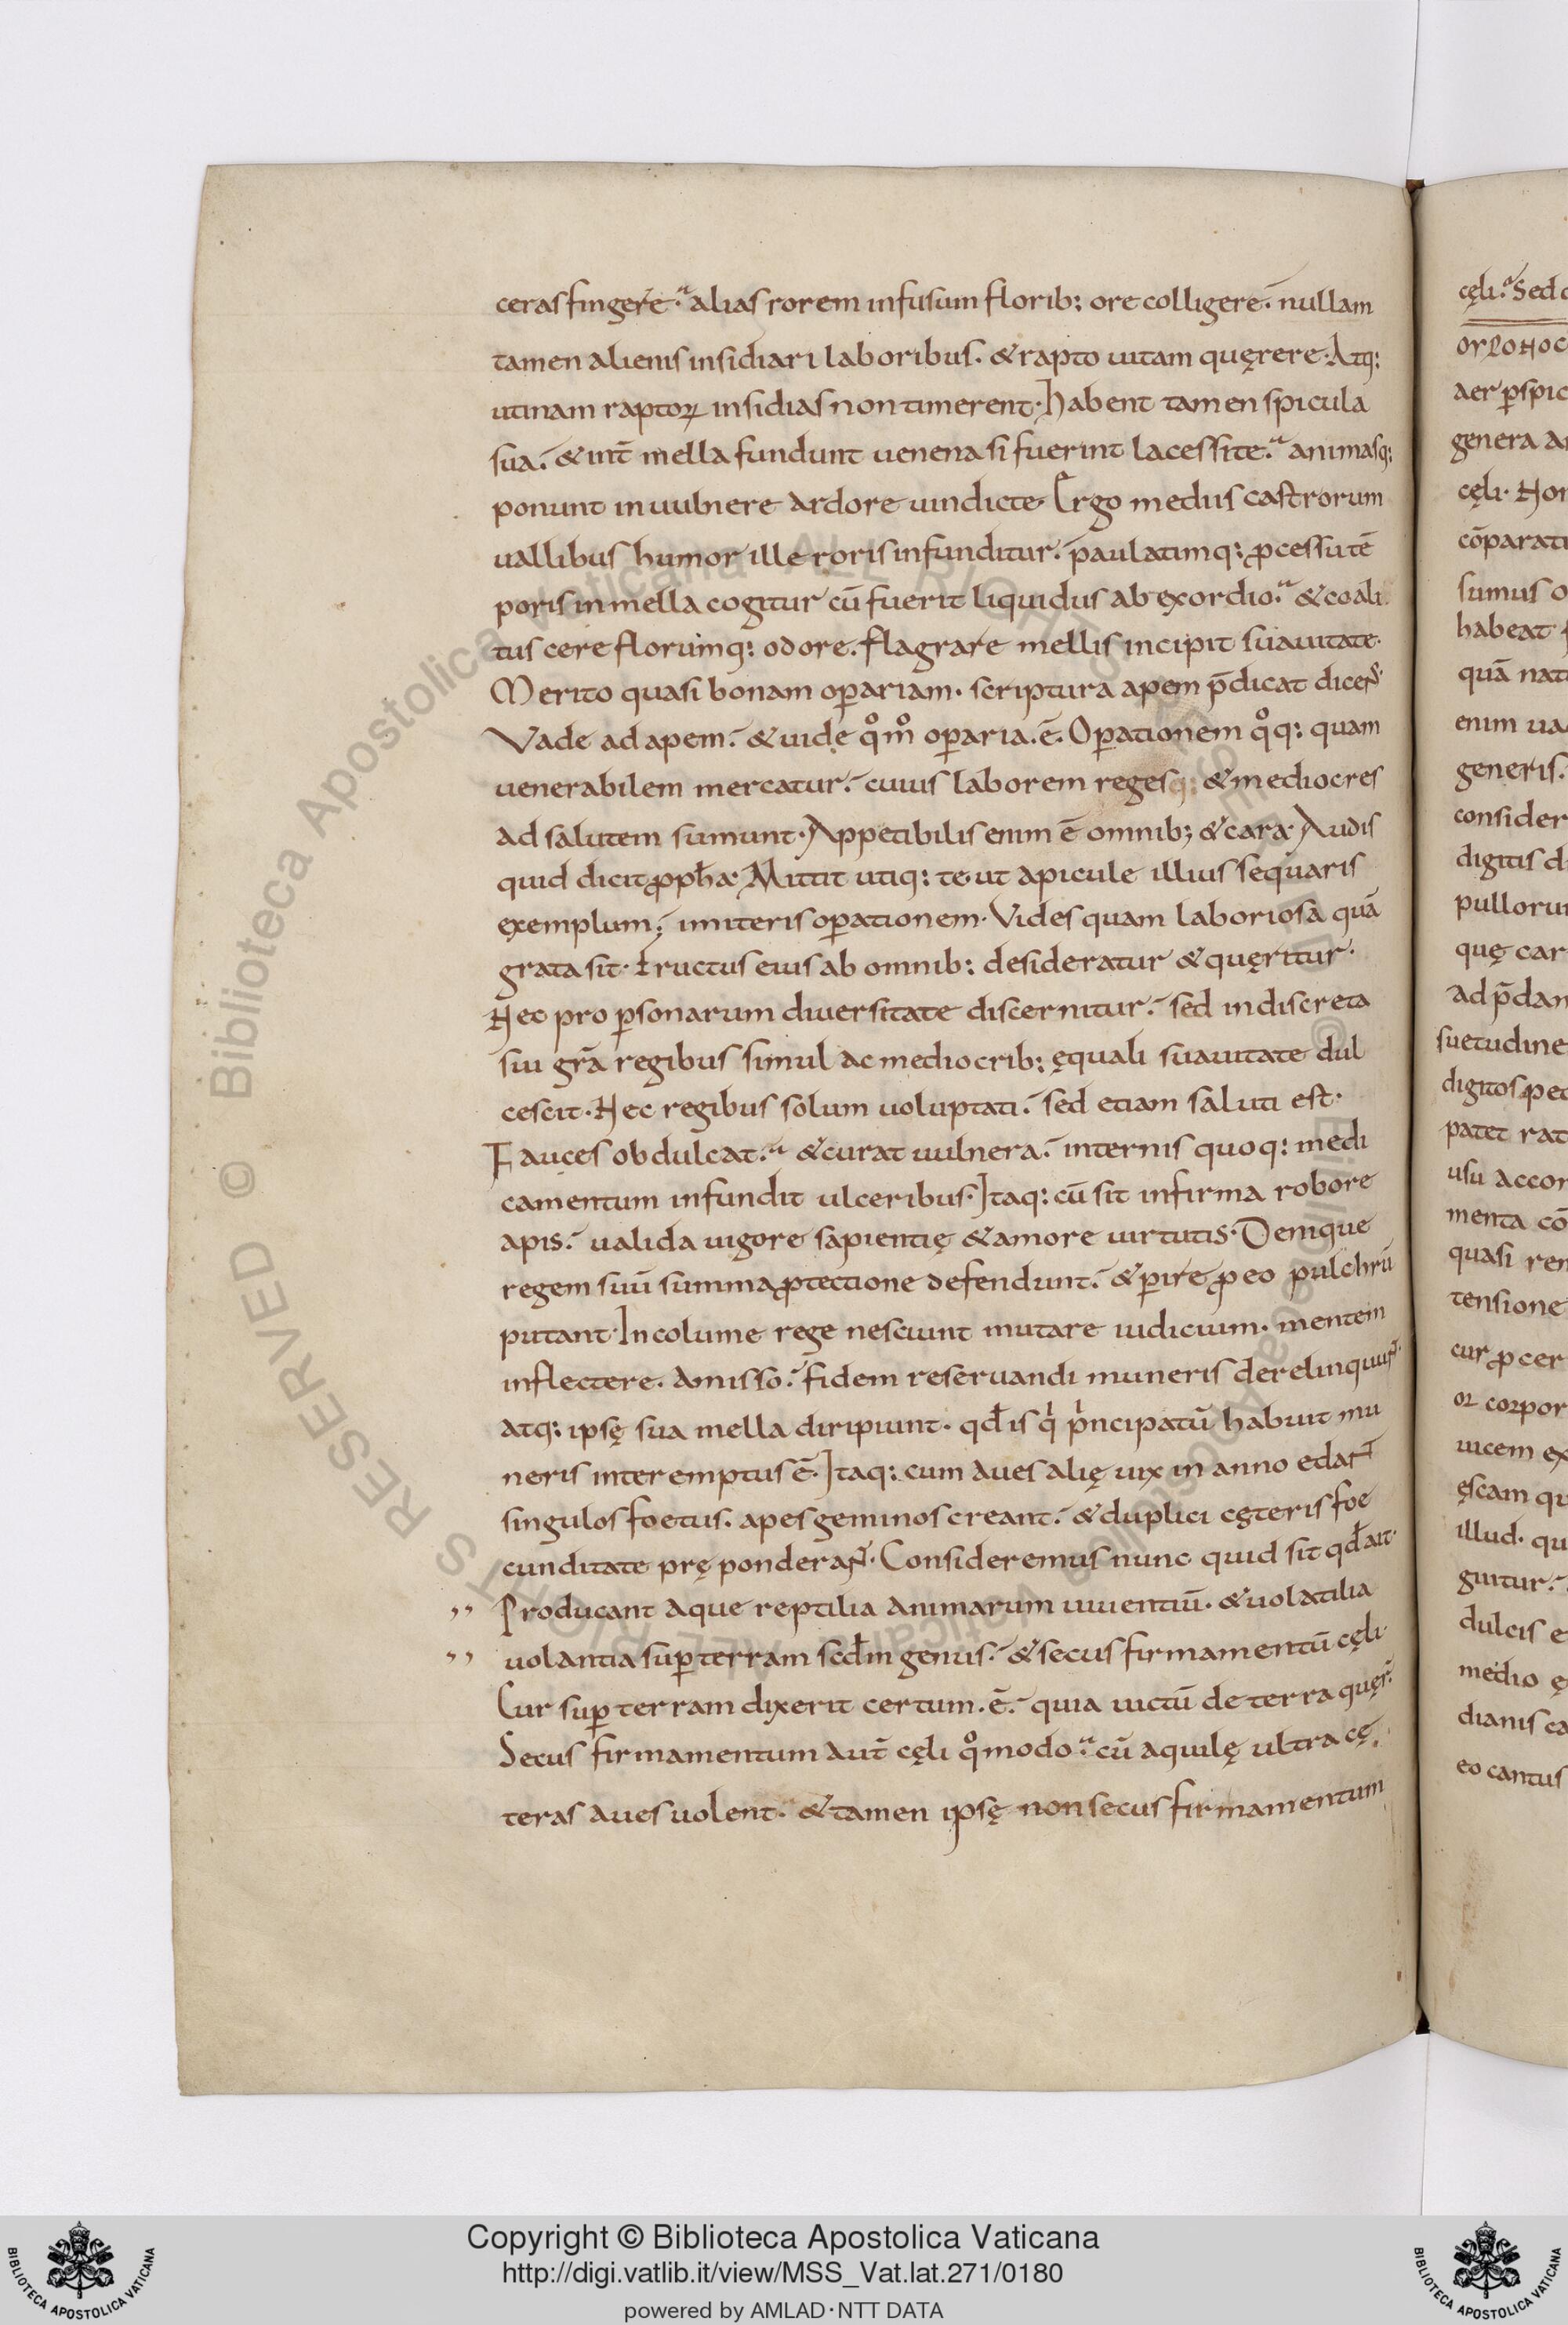 ceras fingere. alias rorem infusum florib: ore colligere. nullam
tamen alienis insidiari laboribus. & rapto uitam quęrere. Atq:
utinam raptoꝝ insidias non timerent. Habent tamen spicula
sua. & int̄ mella fundunt uenena si fuerint lacessite. animasq:
ponunt in uulnere ardore uindicte. Ergo mediis castrorum
uallibus humor ille roris infunditur. paulatimq: ꝓcessu tē
poris in mella cogitur cū fuerit liquidus ab exordio. & coali
tus cere florumq: odore. flagrare mellis incipit suauitate.
Merito quasi bonam oꝑariam. scriptura apem p̄dicat dicens̄.
Vade ad apem. & uide qºmº oꝑaria. ē. Oꝑationem qºq: quam
uenerabilem mercatur. cuius laborem regesq: & mediocres
ad salutem sumunt. Appetibilis enim ē omnib; & cara. Audis
quid dicit ꝓpħa. Mittit utiq: te ut apicule illius sequaris
exemplum; imiteris oꝑationem. Vides quam laboriosa quā
grata sit. Fructus eius ab omnib: desideratur & quęritur.
Hec pro ꝑsonarum diuersitate discernitur. sed indiscreta
sui gr̄a regibus simul ac mediocrib: ęquali suauitate dul
cescit. Hec regibus solum uoluptati. sed etiam saluti est.
Fauces obdulcat. & curat uulnera. internis quoq: medi
camentum infundit ulceribus. Itaq: cū sit infirma robore
apis. ualida uigore sapientię & amore uirtutis. Denique
regem suū summa ꝓtectione defendunt. & ꝑire ꝓ eo pulchrū
putant. Incolume rege nesciunt mutare iudicium. mentem
inflectere. Amisso. fidem reseruandi muneris derelinquunt̄.
atq: ipsę sua mella diripiunt. qđ is qⁱ pⁱncipatū habuit mu
neris interemptus ē. Itaq: cum aues alię uix in anno edant̄
singulos foetus. apes geminos creant. & duplici cęteris foe
cunditate pręponderant̄. Consideremus nunc quid sit qđ ait.
,, Producant aque reptilia animarum uiuentiū. & uolatilia
,, uolantia suꝑ terram scđm genus. & secus firmamentū cęli.
Cur suꝑ terram dixerit certum. ē. quia uictū de terra quęr̄.
Secus firmamentum aut̄ cęli qºmodo. cū aquilę ultra cę
teras aues uolent. & tamen ipsę non secus firmamentum
cęli. Sed
aer ꝑspic
genera a
cęli. Hon
cōparati
sumus o
habeat
quā nat
enim ua
generis.
consider
digitis d
pulloru
quę car
ad p̄dam
suetudine
digitos ped
patet rat
usu accom
menta cō
quasi rem
tensione
cur ꝓcer
or corpor
uicem ex
ęscam qu
illud. qu
guitur.
dulcis e
medio ę
dianis ca
eo cantus
© Biblioteca Apostolica Vaticana ALL RIGHTS RESERVED
Copyright © Biblioteca Apostolica Vaticana
http://digi.vatlib.it/view/MSS_Vat.lat.271/0180
powered by AMLAD · NTT DATA
BIBLIOTECA APOSTOLICA VATICANA
BIBLIOTECA APOSTOLICA VATICANA